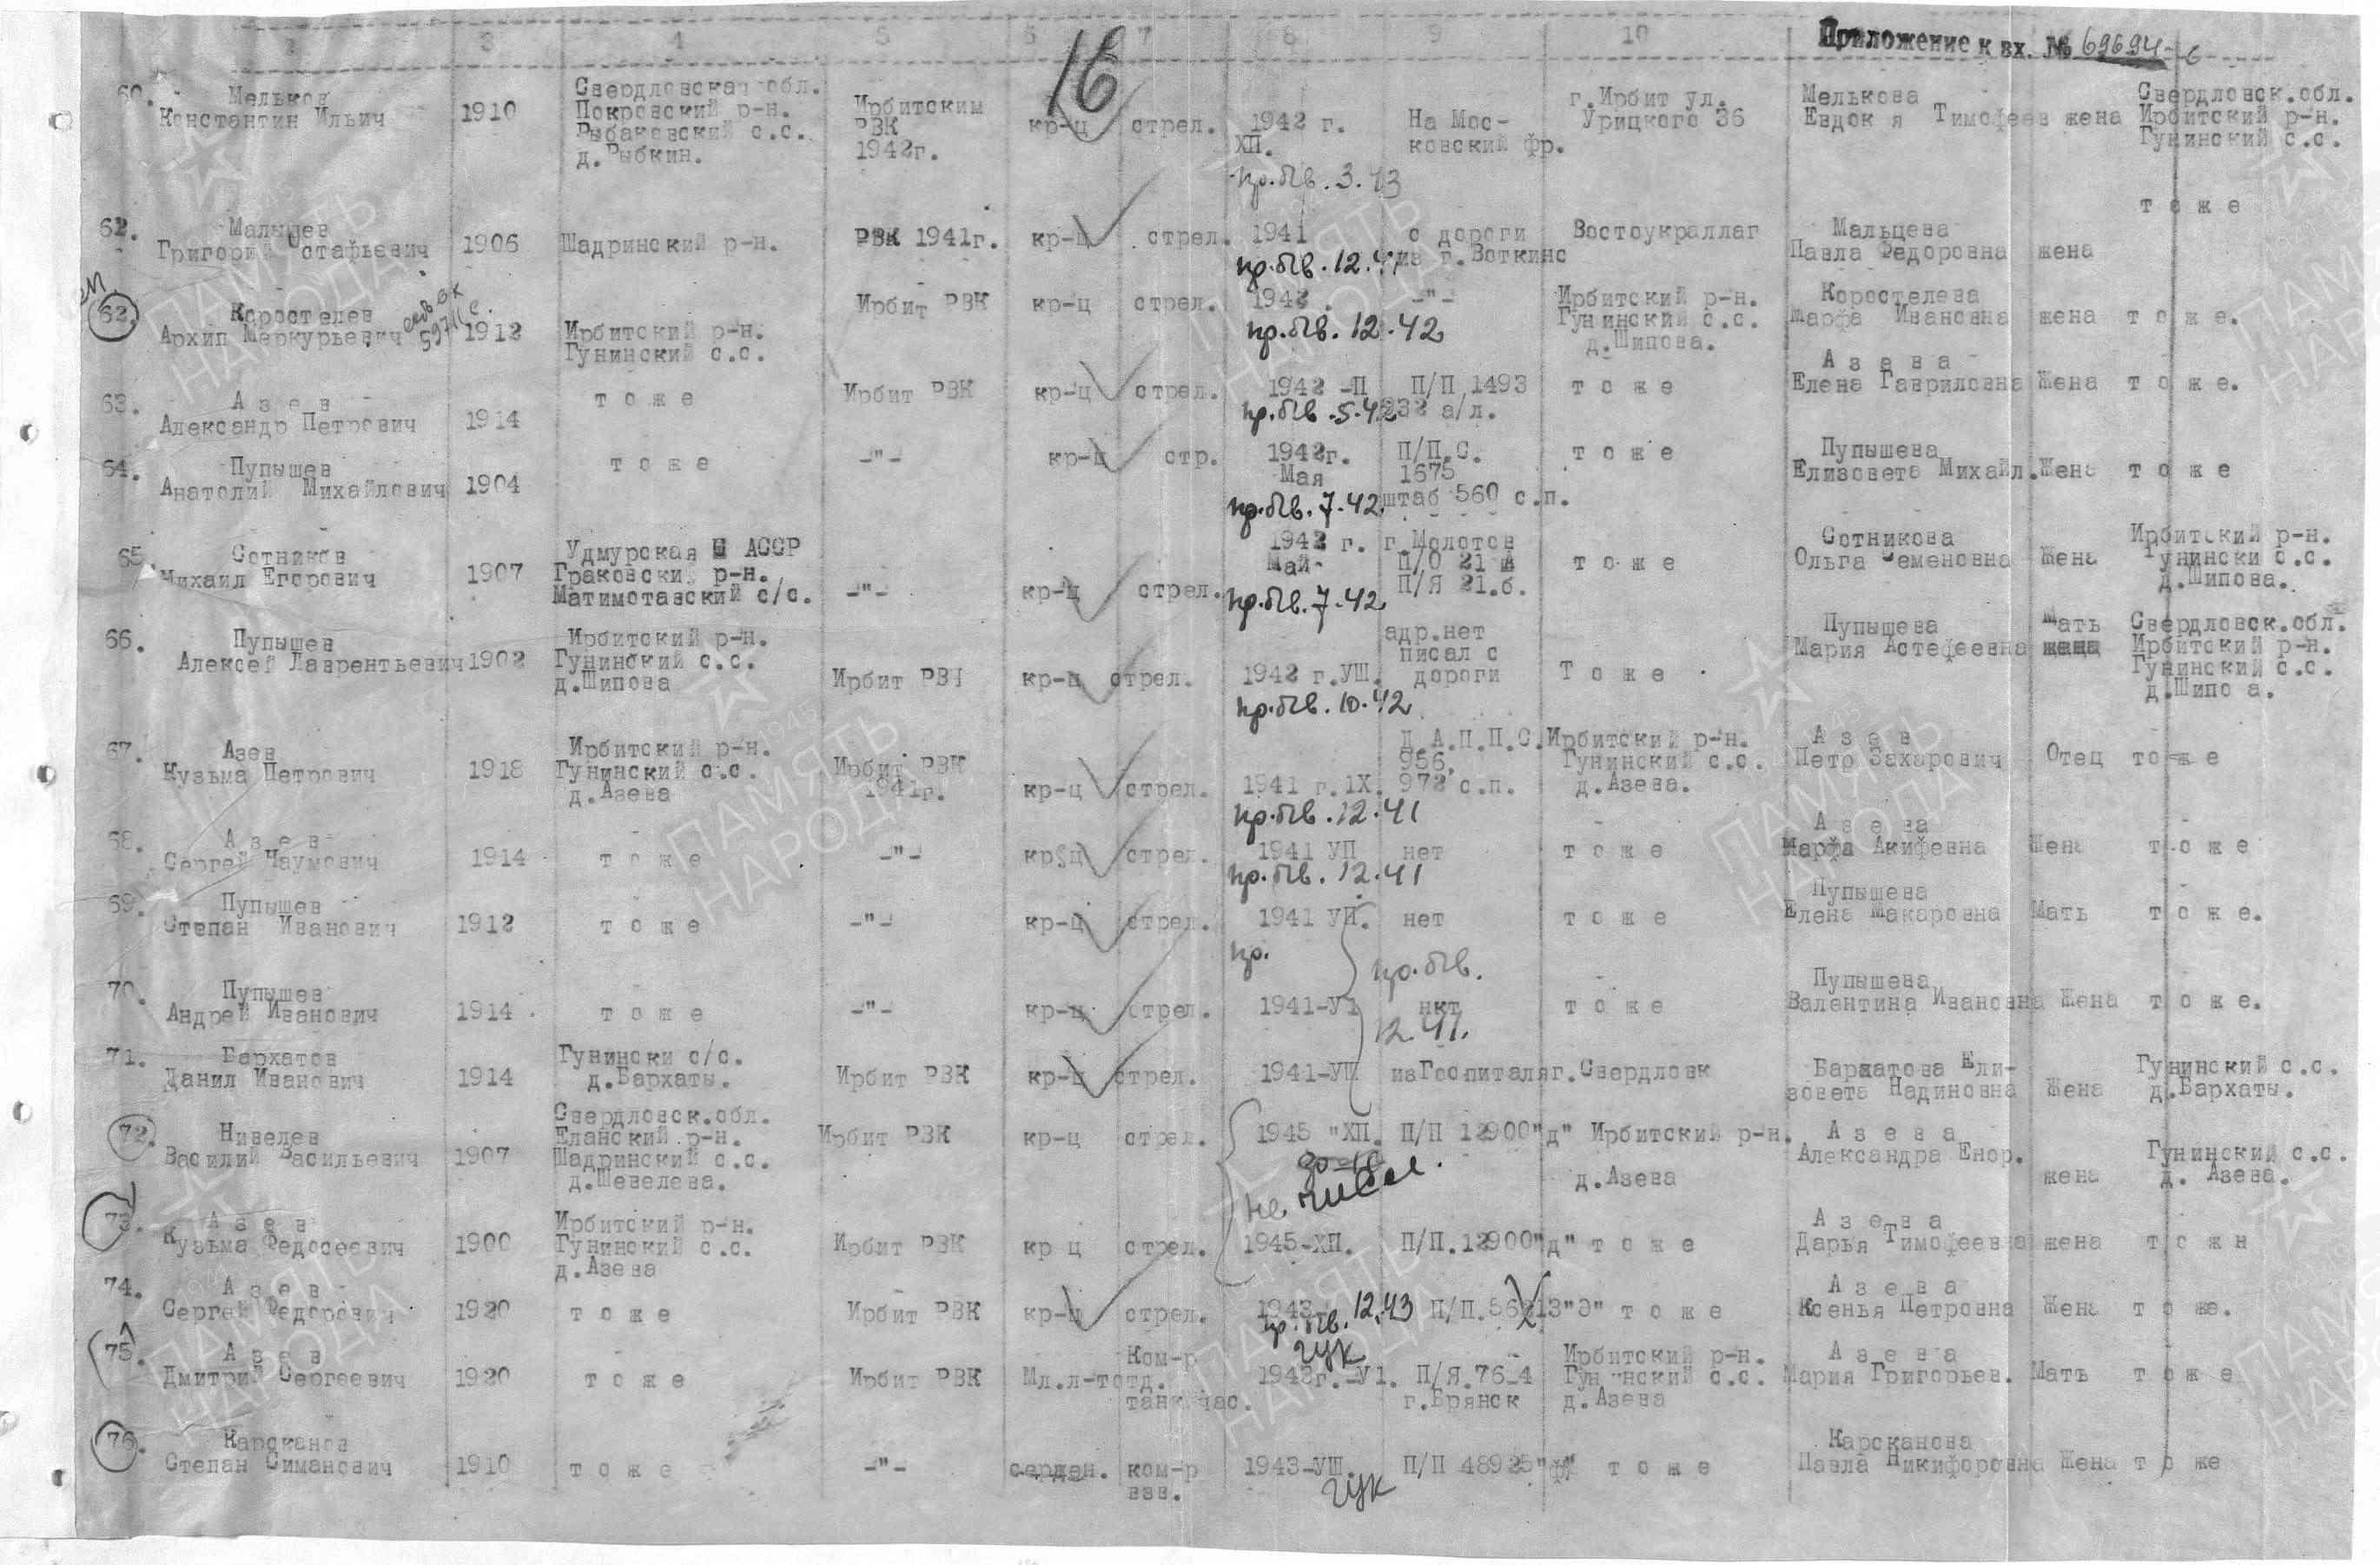 2 3 4 5 6 7 8 9 10 Приложение к вх. № 69694-с
16
60. Мельков
Константин Ильич 1910 Свердловская обл.
Покровский р-н.
Рыбаковский с.с.
д.Рыбкин. Ирбитским
РВК
1942г. кр-ц стрел. 1942 г.
ХП. На Мос-
ковский фр. г.Ирбит ул.
Урицкого 36 Мелькова
Евдок я Тимофеев жена Свердловск.обл.
Ирбитский р-н.
Гунинский с.с.
пр.б/в. 3.43
62. Малышев
Григорий Остафьевич 1906 Шадринский р-н. РВК 1941г. кр-ц стрел. 1941 с дороги
из г.Воткинс Востоукраллаг Мальцева
Павла Федоровна жена т о ж е
пр.б/в. 12.41
62. Коростелев
Архип Меркурьевич 1912 Ирбитский р-н.
Гунинский с.с. Ирбит РВК кр-ц стрел. 1942 . -"- Ирбитский р-н.
Гунинский с.с.
д.Шипова. Коростелева
Марфа Ивановна жена т о ж е.
пр.б/в. 12.42
63. А з е в
Александр Петрович 1914 т о ж е Ирбит РВК кр-ц стрел. 1942 -П П/П 1493
232 а/л. т о ж е А з е в а
Елена Гавриловна Жена т о ж е.
пр.б/в .5.42
64. Пупышев
Анатолий Михайлович 1904 т о ж е -"- кр-ц стр. 1942г.
Мая П/П.С.
1675
штаб 560 с.п. т о ж е Пупышева
Елизовета Михайл. Жена т о ж е
пр.б/в. 7.42
65 Сотников
Михаил Егорович 1907 Удмурская АССР
Граковски, р-н.
Матимотавский с/с. -"- кр-ц стрел. 1942 г.
Май- г.Молотов
П/О 21 А
П/Я 21.б. т о ж е Сотникова
Ольга Семеновна Жена Ирбитский р-н.
Гунински с.с.
д.Шипова.
пр.б/в. 7.42
66. Пупышев
Алексей Лаврентьевич 1902 Ирбитский р-н.
Гунинский с.с.
д.Шипова Ирбит РВК кр-ц стрел. 1942 г.УШ. адр.нет
писал с
дороги Т о ж е Пупышева
Мария Астефеевна Мать
жена Свердловск.обл.
Ирбитский р-н.
Гунинский с.с.
д.Шипо а.
пр.б/в. 10.42
67. Азев
Кузьма Петрович 1918 Ирбитский р-н.
Гунинский с.с.
д.Азева Ирбит РВК
1941г. кр-ц стрел. 1941 г.1Х. Д.А.П.П.С.
956,
972 с.п. Ирбитский р-н.
Гунинский с.с.
д.Азева. А з е в
Петр Захарович Отец то же
пр.б/в. 12.41
68. А з е в
Сергей Наумович 1914 т о ж е -"- кр-ц стрел. 1941 УП нет т о ж е А з е ва
Марфа Акифевна Жена т о ж е
пр.б/в. 12.41
69. Пупышев
Степан Иванович 1912 т о ж е -"- кр-ц стрел. 1941 УП. нет т о ж е Пупышева
Елена Макаровна Мать т о ж е.
пр.
пр.б/в.
70. Пупышев
Андрей Иванович 1914 т о ж е -"- кр-ц стрел. 1941-У1 нкт т о ж е Пупышева
Валентина Ивановна Жена т о ж е.
12.41.
71. Бархатов
Данил Иванович 1914 Гунински с/с.
д.Бархаты. Ирбит РВК кр-ц стрел. 1941-УП изГоспиталя г.Свердловк Бархатова Ели-
зовета Надиновна Жена Гунинский с.с.
д.Бархаты.
72. Нивелев
Василий Васильевич 1907 Свердловск.обл.
Еланский р-н.
Шадринский с.с.
д.Шевелева. Ирбит РВК кр-ц стрел. 1945 "ХП. П/П 12900"д" Ирбитский р-н.
д.Азева А з е в а
Александра Енор. жена Гунинский с.с.
д. Азева.
не писал.
73. А з е в
Кузьма Федосеевич 1900 Ирбитский р-н.
Гунинский с.с.
д.Азева Ирбит РВК кр ц стрел. 1945-ХП. П/П.12900"д" т о ж е А з е в а
Дарья Тимофеевна жена т о ж н
74. А з е в
Сергей Федорович 1920 т о ж е Ирбит РВК кр-ц стрел. 1943 П/П.56213"Э" т о ж е А з е в а
Ксенья Петровна Жена т о же.
пр.б/в. 12.43
75. А з е в
Дмитрий Сергеевич 1920 т о ж е Ирбит РВК Мл.л-т Ком-р
отд.
танк час. 1942г.-У1. П/Я.76-4
г.Брянск Ирбитский р-н.
Гунинский с.с.
д.Азева А з е в а
Мария Григорьев. Мать т о ж е
гук
76. Карсканов
Степан Симанович 1910 т о ж е -"- сержан. ком-р
взв. 1943-УШ. П/П 48925"ф" т о ж е Карсканова
Павла Никифоровна Жена т о же
гук
ПАМЯТЬ
НАРОДА